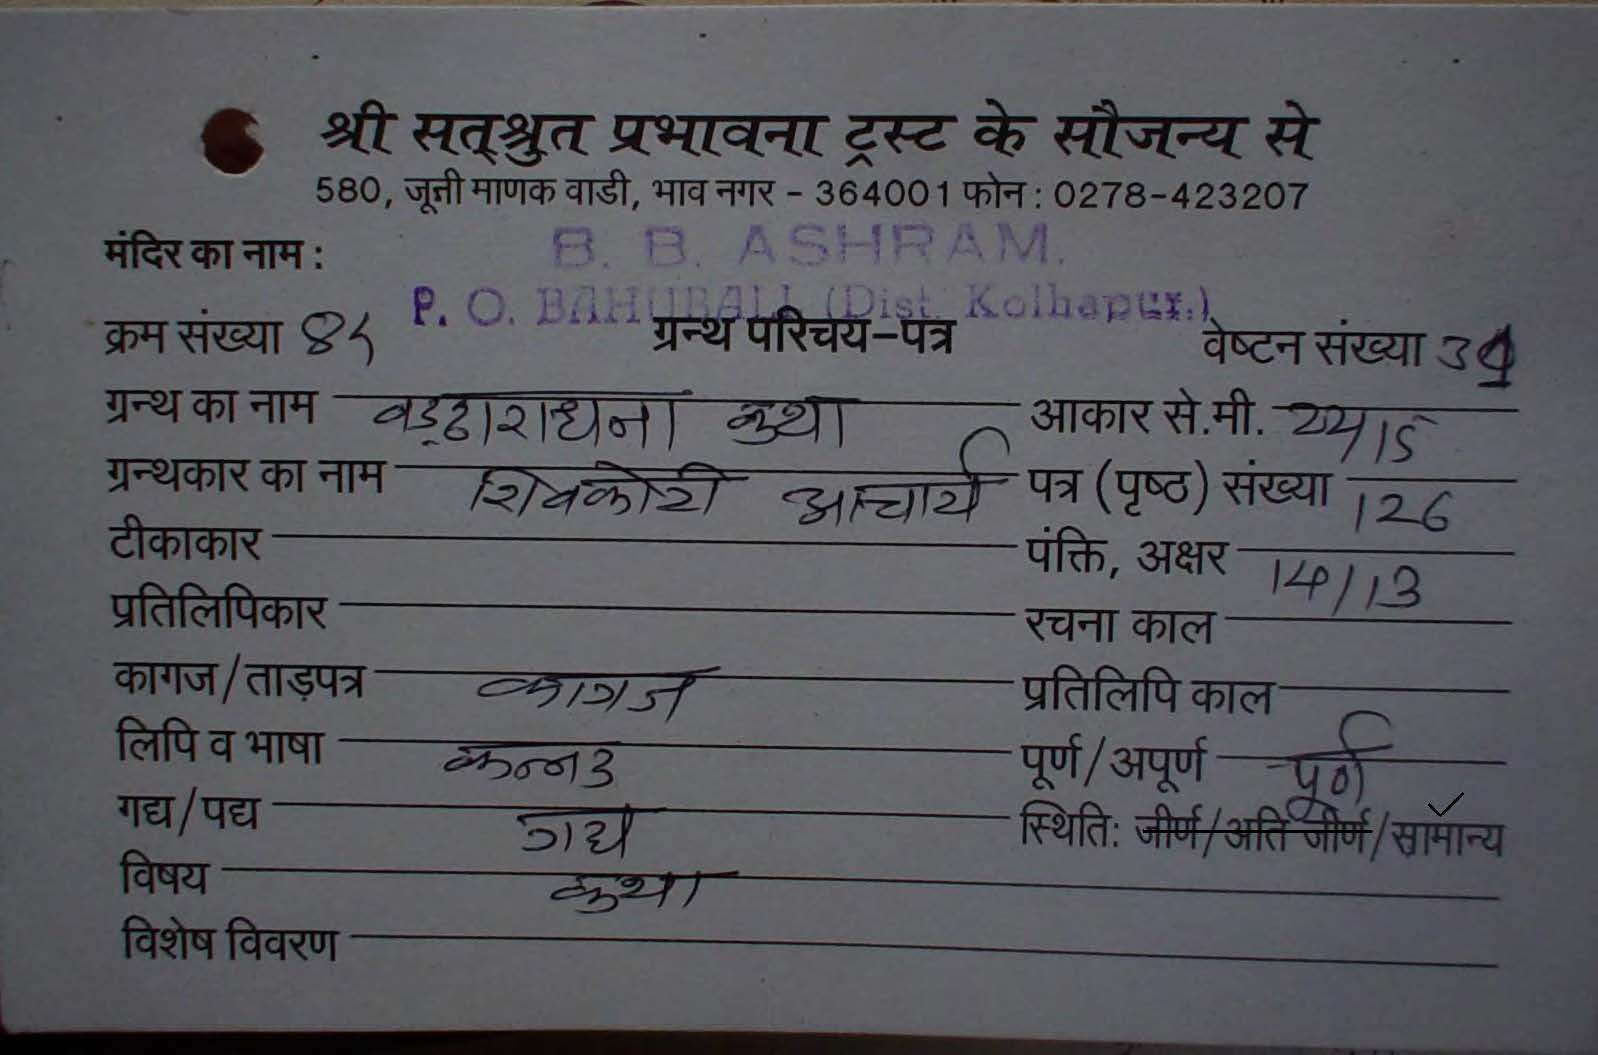 श्री सत्श्रुत प्रभावना ट्रस्ट के सौजन्य से
580, जूनी माणक वाडी, भाव नगर - 364001 फोन : 0278-423207
मंदिर का नाम : B. B. ASHRAM.
P. O. BAHUBALI (Dist. Kolhapur.)
क्रम संख्या ग्रन्थ परिचय-पत्र वेष्टन संख्या
ग्रन्थ का नाम वड्ढाराधना कथा आकार से.मी.
ग्रन्थकार का नाम शिवकोटी आचार्य पत्र (पृष्ठ) संख्या 126
टीकाकार पंक्ति, अक्षर 14/13
प्रतिलिपिकार रचना काल
कागज/ताड़पत्र कागज प्रतिलिपि काल
लिपि व भाषा कन्नड पूर्ण/अपूर्ण पूर्ण
गद्य/पद्य गद्य स्थिति: जीर्ण/अति जीर्ण/सामान्य ✓
विषय कथा
विशेष विवरण